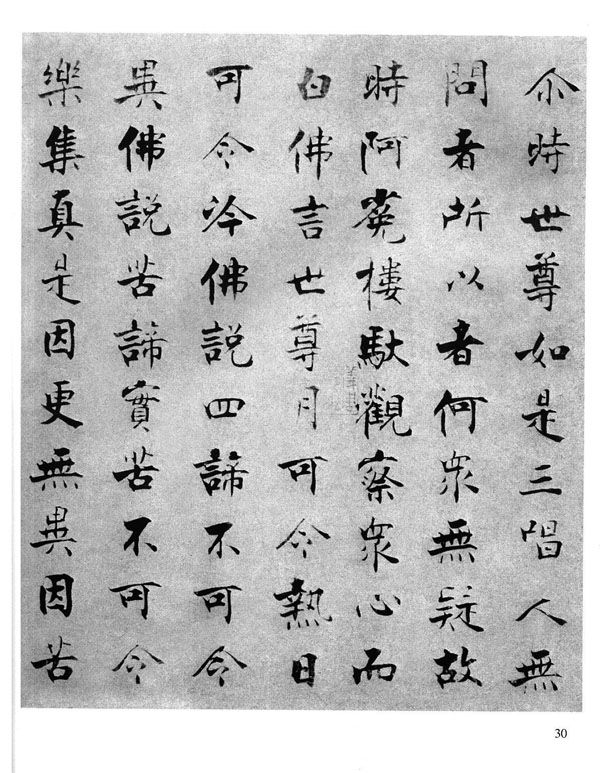 尒時世尊如是三唱人無
問者所以者何衆無疑故
時阿㝹樓馱觀察衆心而
白佛言世尊月可令熱日
可令冷佛說四諦不可令
異佛說苦諦實苦不可令
樂集真是因更無異因苦
30